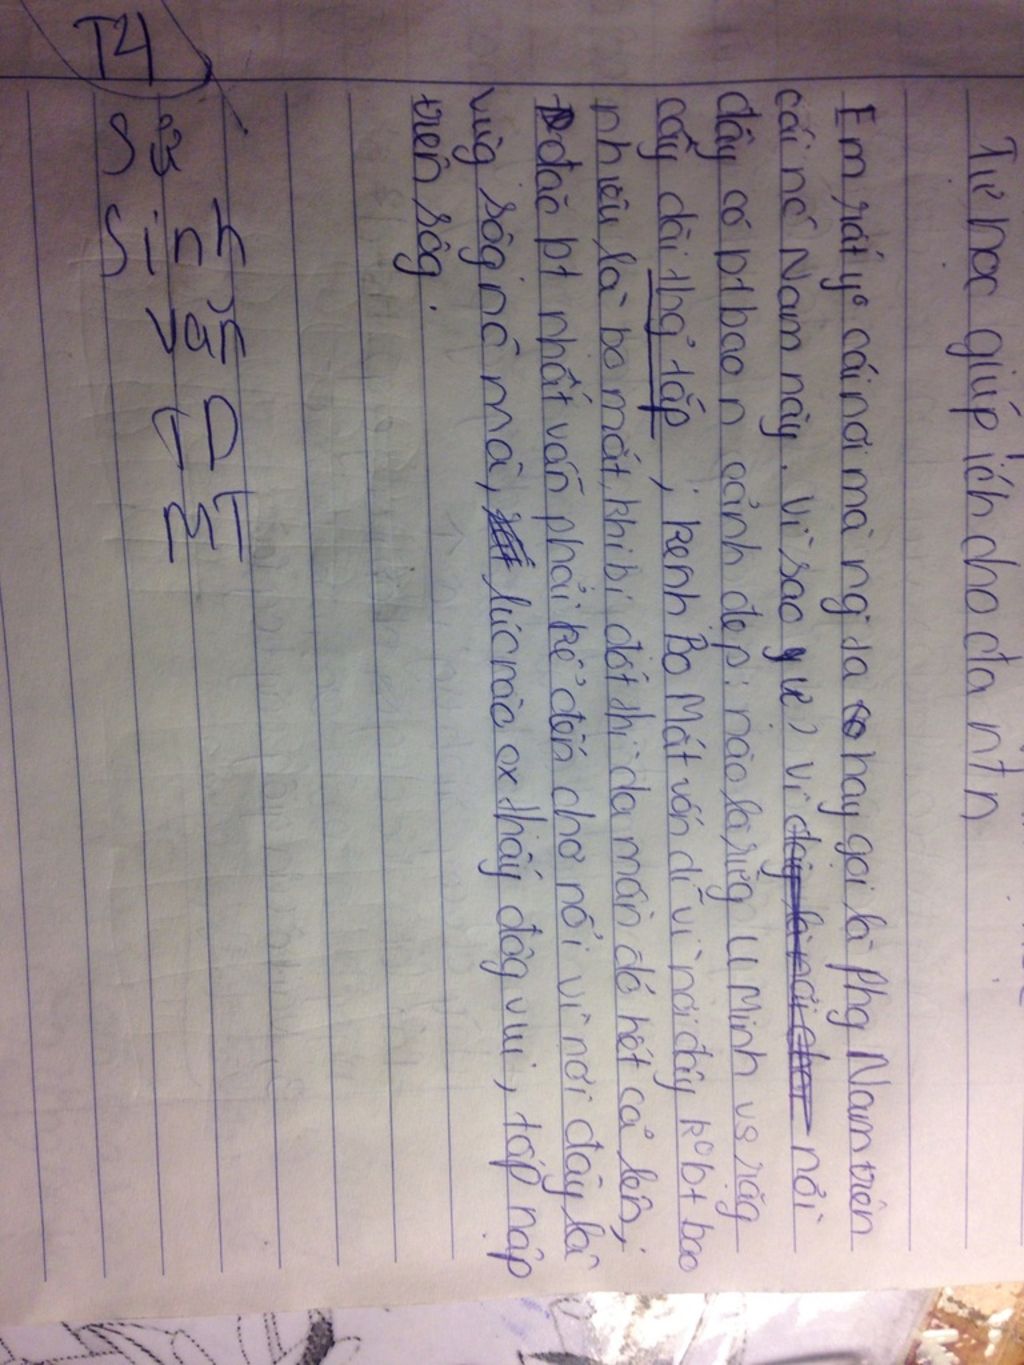 Tự học giúp ích cho ta nh n
Em rất yº cái nơi mà ng ta hay gọi là Phg Nam trên
cái nc Nam này. Vì sao ư? Vì nơi
đây có pt bao n cảnh đẹp: nào là rừg U Minh vs rặg
cây dài thg tắp, kênh Bọ Mắt vốn dĩ vì nơi đây kº bt bao
nhiêu là bọ mắt, khi bị đốt thì da mẩn đỏ hết cả lên;
đặc pt nhất vẫn phải kể đến chợ nổi vì nơi đây là
vùg sôg nc mà, lúc nào cx thấy đôg vui, tấp nập
trên sôg.
T4
Sử
Sinh
Văn
TD
MT